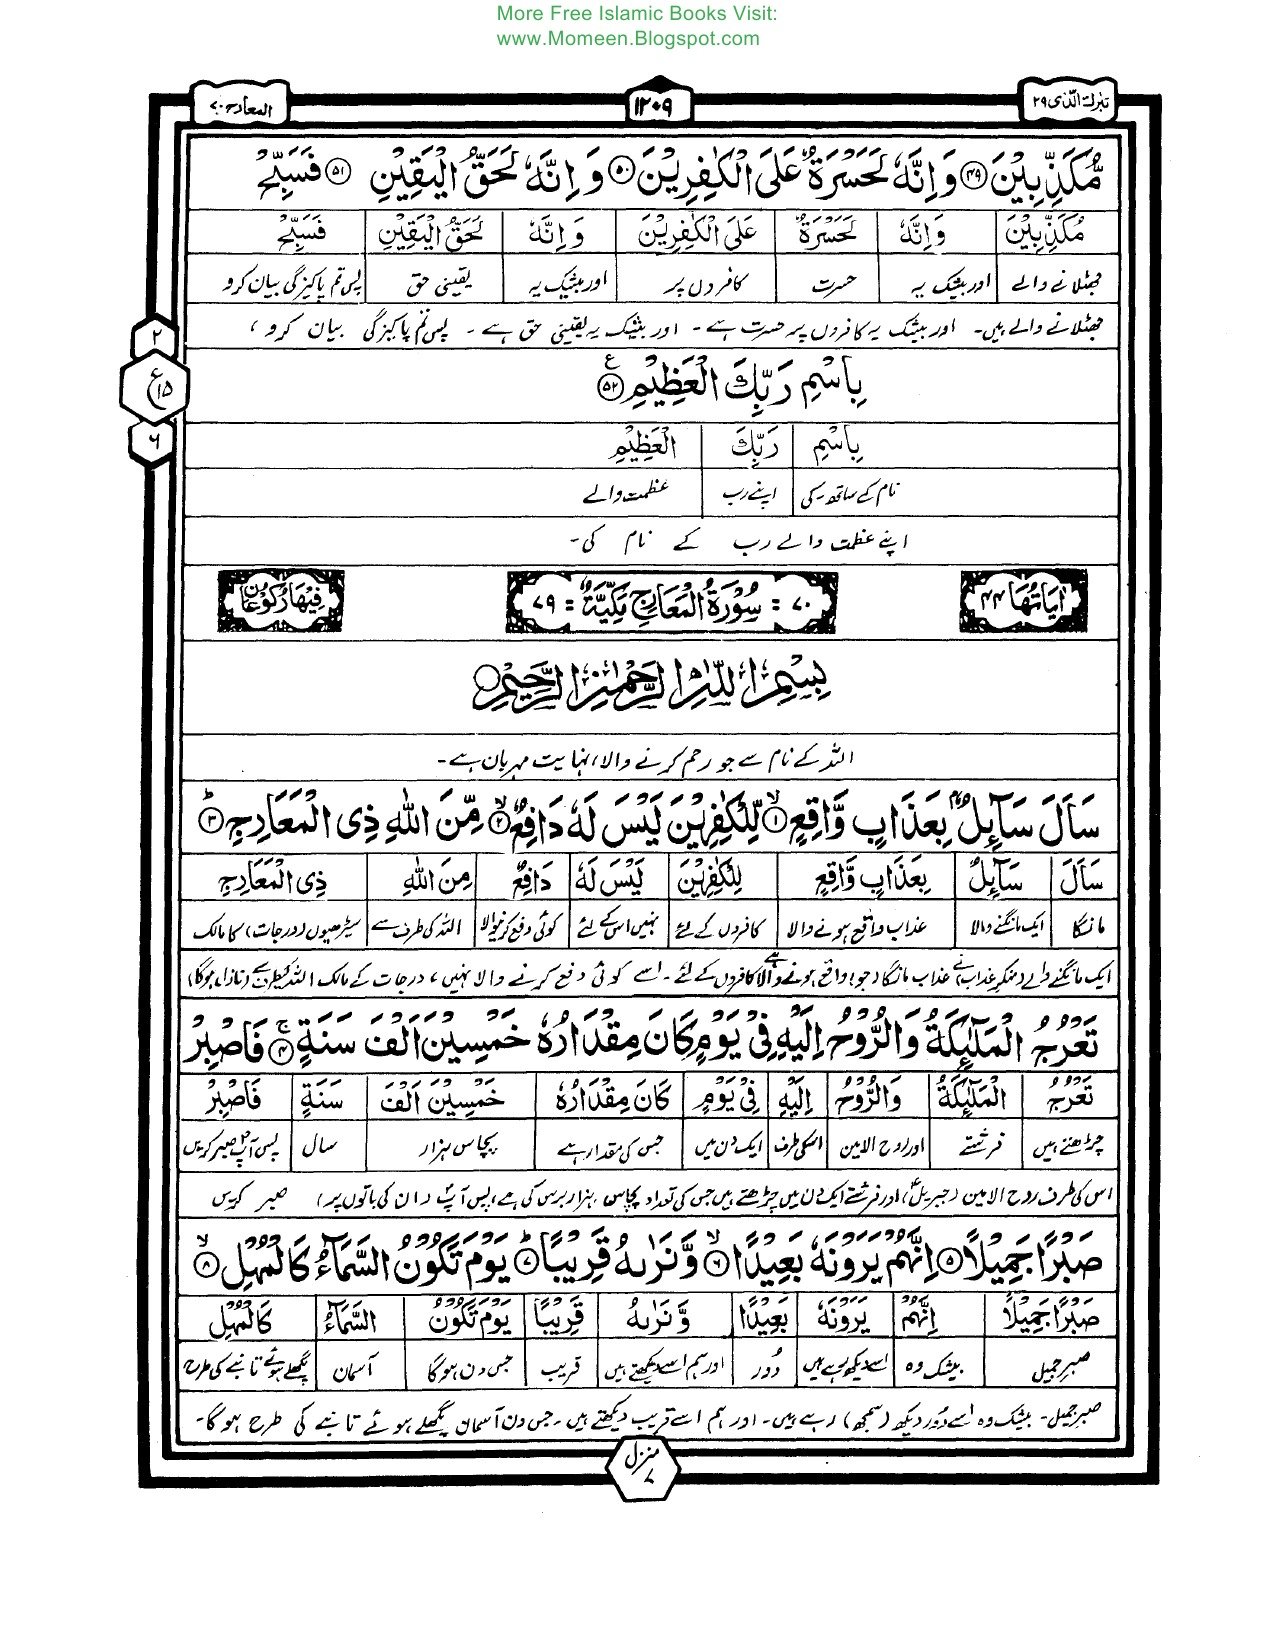 More Free Islamic Books Visit:
www.Momeen.Blogspot.com
تبرك الذی ۲۹ ۱۲۰۹ المعارج ۷۰
مُّكَذِّبِيْنَ ۴۹ وَ اِنَّهٗ لَحَسْرَةٌ عَلَى الْكٰفِرِيْنَ ۵۰ وَ اِنَّهٗ لَحَقُّ الْيَقِيْنِ ۵۱ فَسَبِّحْ
مُكَذِّبِيْنَ وَ اِنَّهٗ لَحَسْرَةٌ عَلَى الْكٰفِرِيْنَ وَ اِنَّهٗ لَحَقُّ الْيَقِيْنِ فَسَبِّحْ
جھٹلانے والے اور بیشک یہ حسرت کافروں پر اور بیشک یہ یقینی حق پس تم پاکیزگی بیان کرو
جھٹلانے والے ہیں۔ اور بیشک یہ کافروں پر حسرت ہے۔ اور بیشک یہ یقینی حق ہے۔ پس تم پاکیزگی بیان کرو،
۲
ع ۱۵
۶
بِاسْمِ رَبِّكَ الْعَظِيْمِ ۵۲ ع
بِاسْمِ رَبِّكَ الْعَظِيْمِ
نام کے ساتھ۔ کی اپنے رب عظمت والے
اپنے عظمت والے رب کے نام کی۔
اٰیَاتُهَا ۴۴ ۷۰ = سُوْرَةُ الْمَعَارِجِ مَكِّيَّةٌ = ۷۹ فِيْهَا رُكُوْعَانِ
بِسْمِ اللّٰهِ الرَّحْمٰنِ الرَّحِيْمِ
اللہ کے نام سے جو رحم کرنے والا، نہایت مہربان ہے۔
سَاَلَ سَآئِلٌۢ بِعَذَابٍ وَّاقِعٍ ۱ لِّلْكٰفِرِيْنَ لَيْسَ لَهٗ دَافِعٌ ۲ مِّنَ اللّٰهِ ذِى الْمَعَارِجِ ۳
سَاَلَ سَآئِلٌ بِعَذَابٍ وَّاقِعٍ لِلْكٰفِرِيْنَ لَيْسَ لَهٗ دَافِعٌ مِنَ اللّٰهِ ذِى الْمَعَارِجِ
مانگا ایک مانگنے والا عذاب واقع ہونے والا کافروں کے لئے نہیں اس کے لئے کوئی دفع کرنیوالا اللہ کی طرف سے سیڑھیوں (درجات) کا مالک
ایک مانگنے والے (منکر عذاب) نے عذاب مانگا (جو) واقع ہونے والا ہے کافروں کے لئے۔ اسے کوئی دفع کرنے والا نہیں، درجات کے مالک اللہ کیطرف سے (نازل ہوگا)
تَعْرُجُ الْمَلٰٓئِكَةُ وَالرُّوْحُ اِلَيْهِ فِيْ يَوْمٍ كَانَ مِقْدَارُهٗ خَمْسِيْنَ اَلْفَ سَنَةٍ ۴ فَاصْبِرْ
تَعْرُجُ الْمَلٰٓئِكَةُ وَالرُّوْحُ اِلَيْهِ فِيْ يَوْمٍ كَانَ مِقْدَارُهٗ خَمْسِيْنَ اَلْفَ سَنَةٍ فَاصْبِرْ
چڑھتے ہیں فرشتے اور روح الامین اسکی طرف ایک دن میں جس کی مقدار ہے پچاس ہزار سال پس آپؐ صبر کریں
اس کی طرف روح الامین (جبریلؑ) اور فرشتے ایک دن میں چڑھتے ہیں جس کی تعداد پچاس ہزار برس کی ہے، پس آپؐ (ان کی باتوں پر) صبر کریں
صَبْرًا جَمِيْلًا ۵ اِنَّهُمْ يَرَوْنَهٗ بَعِيْدًا ۶ وَّنَرٰىهُ قَرِيْبًا ۷ يَوْمَ تَكُوْنُ السَّمَآءُ كَالْمُهْلِ ۸
صَبْرًا جَمِيْلًا اِنَّهُمْ يَرَوْنَهٗ بَعِيْدًا وَّنَرٰىهُ قَرِيْبًا يَوْمَ تَكُوْنُ السَّمَآءُ كَالْمُهْلِ
صبر جمیل بیشک وہ اسے دیکھ رہے ہیں دُور اور ہم اسے دیکھتے ہیں قریب جس دن ہوگا آسمان پگھلے ہوئے تانبے کی طرح
صبر جمیل۔ بیشک وہ اسے دُور دیکھ (سمجھ) رہے ہیں۔ اور ہم اسے قریب دیکھتے ہیں۔ جس دن آسمان پگھلے ہوئے تانبے کی طرح ہوگا۔
منزل ۷